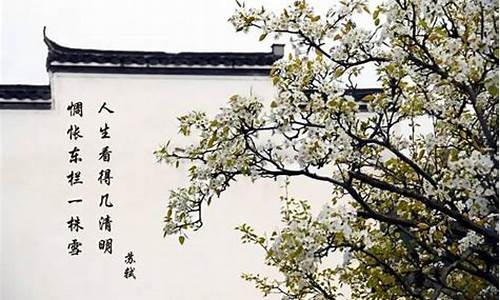 惆怅东栏一株雪
人生看得几清明
苏轼